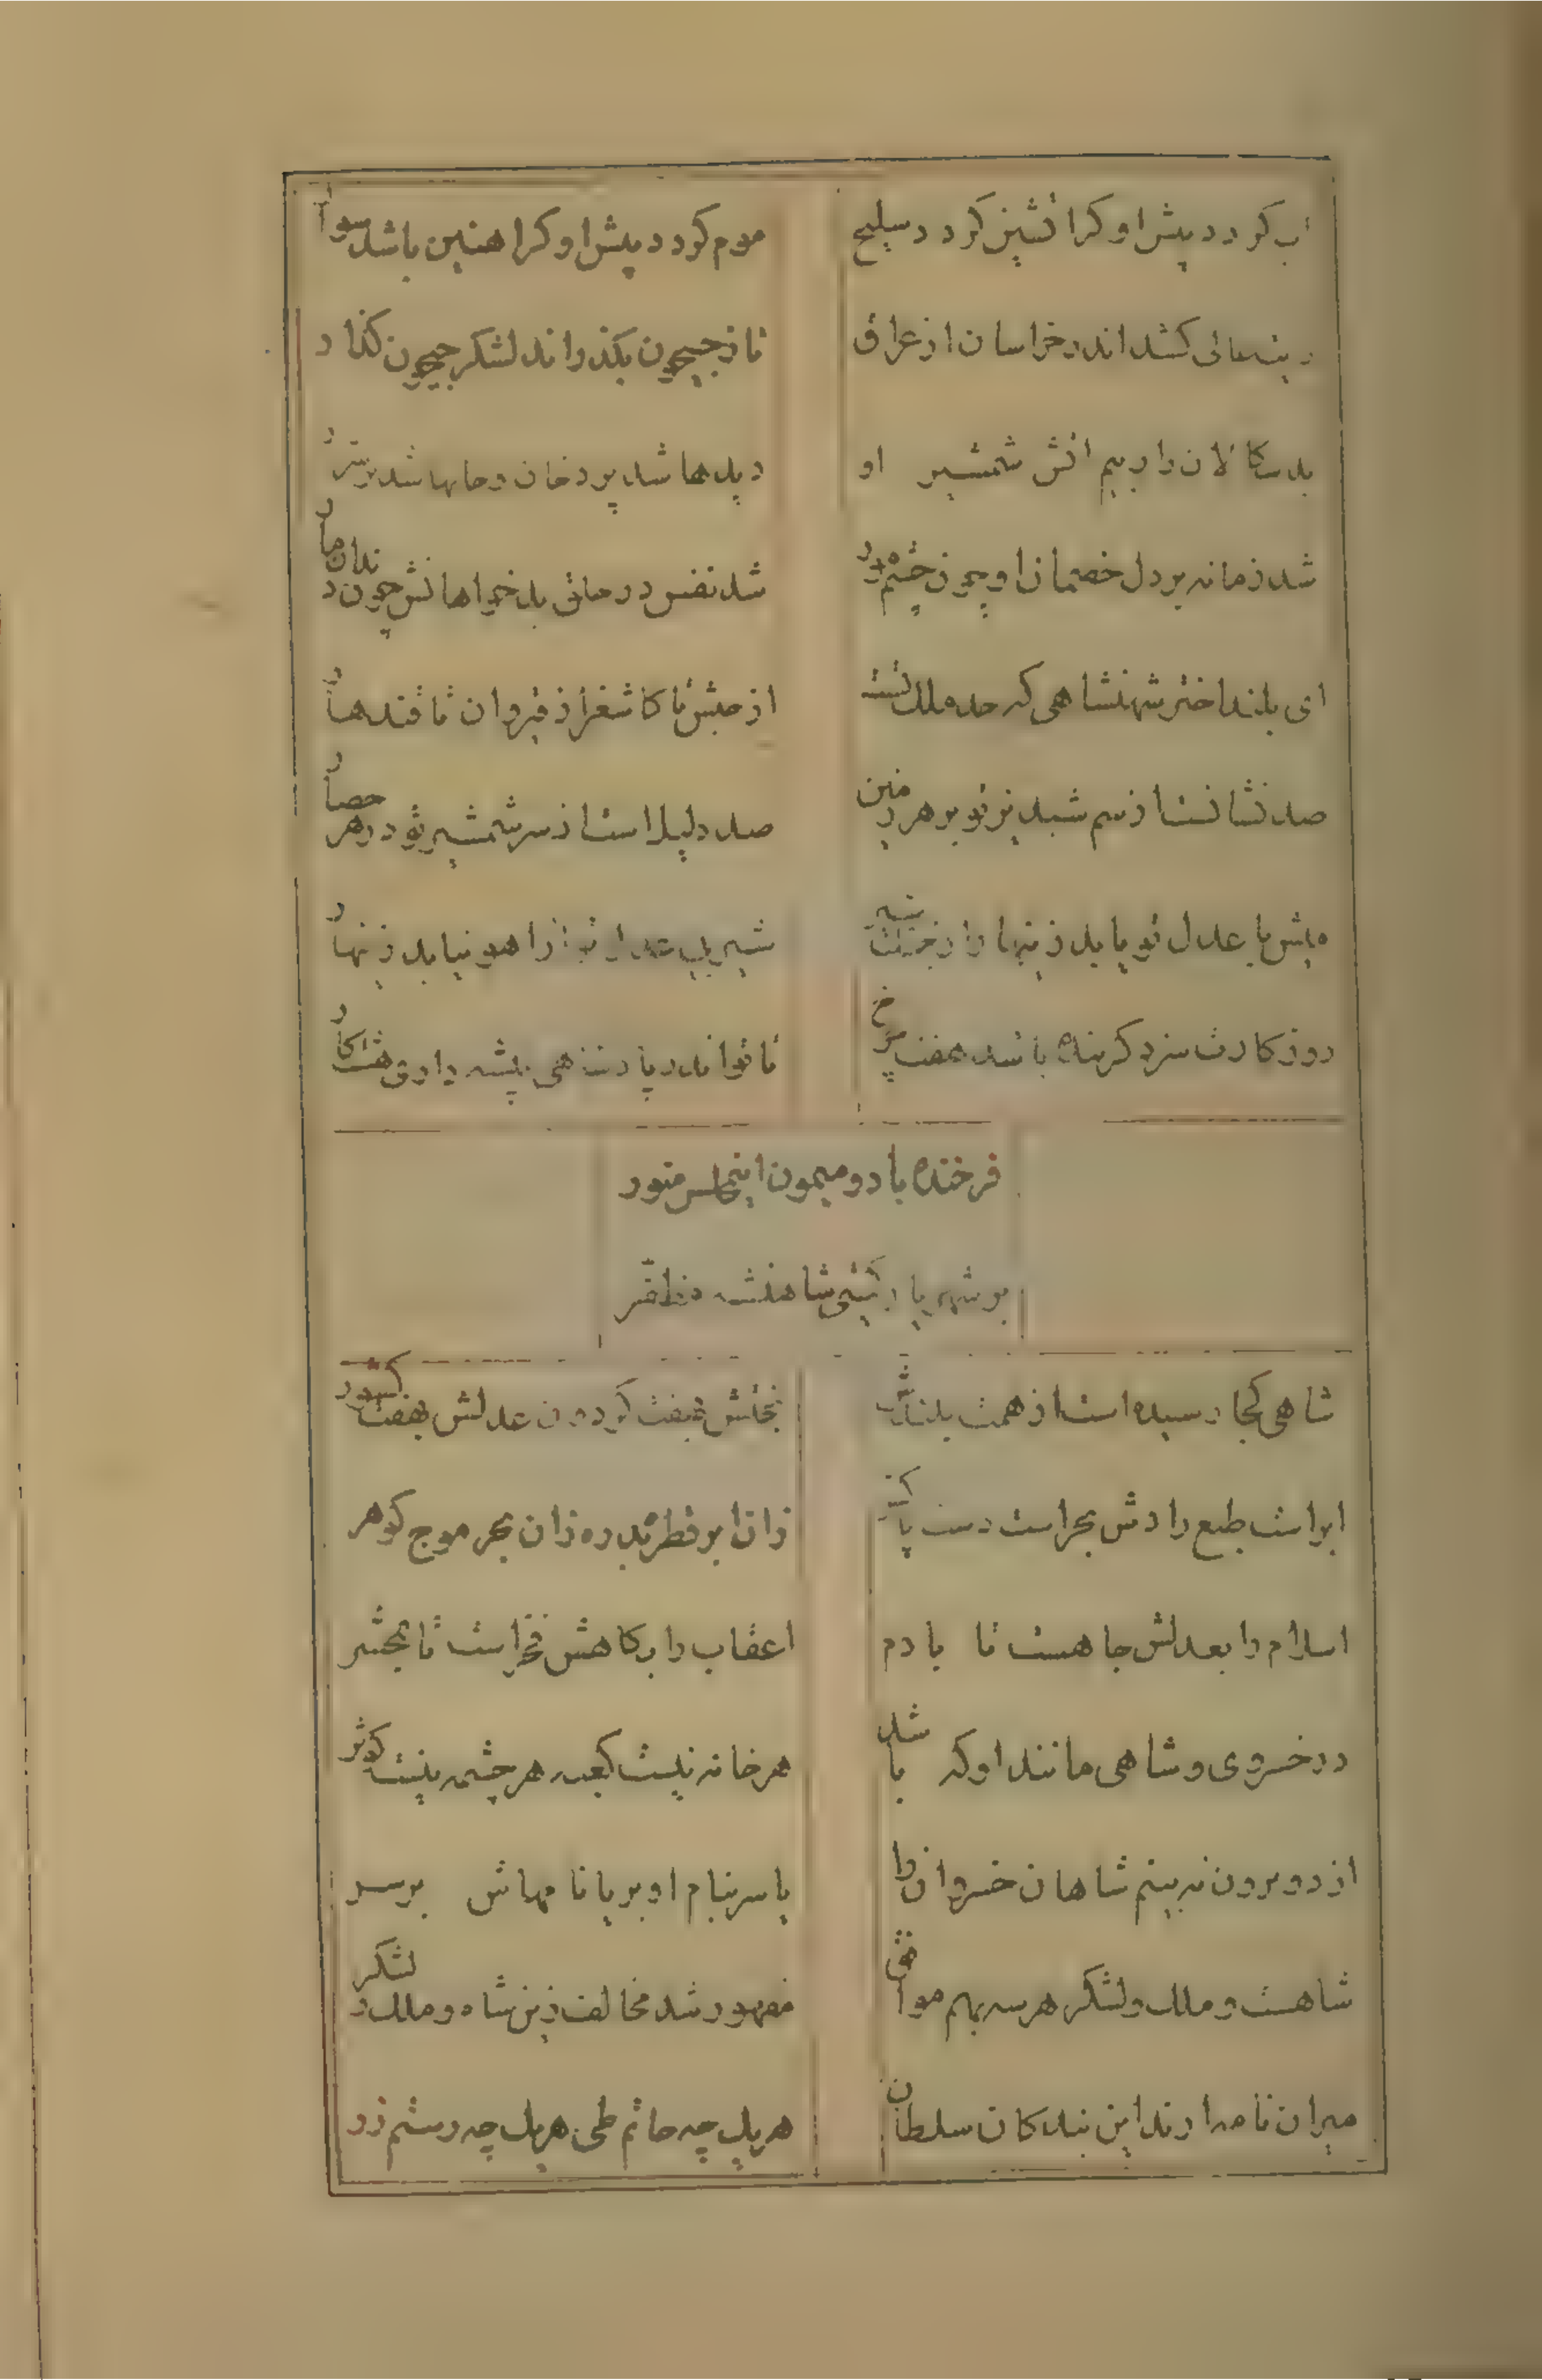 آب کردد پیش او کر آتشین کردد سلیح
موم کردد پیش او کر اهنین باشد سوار
کشد اندر خراسان از عراق
تا ز جیحون بکذراند لشکر جیحون کذار
بدسکالان را ز بیم اتش شمشیر او
دیدها شد پر دخان و جانها شد پر شرار
شد زمانه بر دل خصمان او چون چشم مور
شد نفس در حلق بدخواهانش چون دندان مار
ای بلند اختر شهنشاهی که حد ملک تست
از حبش تا کاشغر از قیروان تا قندهار
صد نشانست از سم شبدیز تو بر هر زمین
صد دلیل است از سر شمشیر تو در هر حصار
میش با عدل تو یابد زینهار از
شیر بی عدل تو از اهو نیابد زینهار
روزکارت سزد کر بنده باشد هفت چرخ
تا تو اندر پادشاهی پیشه داری هشت کار
فرخنده باد و میمون این مجلس منور
بر شهریار کیتی شاهنشه مظفر
شاهی کجا رسیده است از همت بلندش
بختش بهفت کردون عدلش بهفت کشور
ابر است طبع رادش بحر است دست پاکش
زان ابر قطره بدره زان بحر موج کوهر
اسلام را بعدلش جاهست تا بادم
اعقاب را بکاهش فخر است تا بمحشر
در خسروی و شاهی مانند او که باشد
هر خانه نیست کعبه هر چشمه نیست کوثر
از دو برون نه بینم شاهان خسروان را
یا سر بنام او بر یا نامهاش بر سر
شاهست و ملک و لشکر هر سه بهم موافق
مقهور شد مخالف زین شاه و ملک و لشکر
میران نامدارند این بندکان سلطان
هر یک چه حاتم طی هر یک چه رستم زر